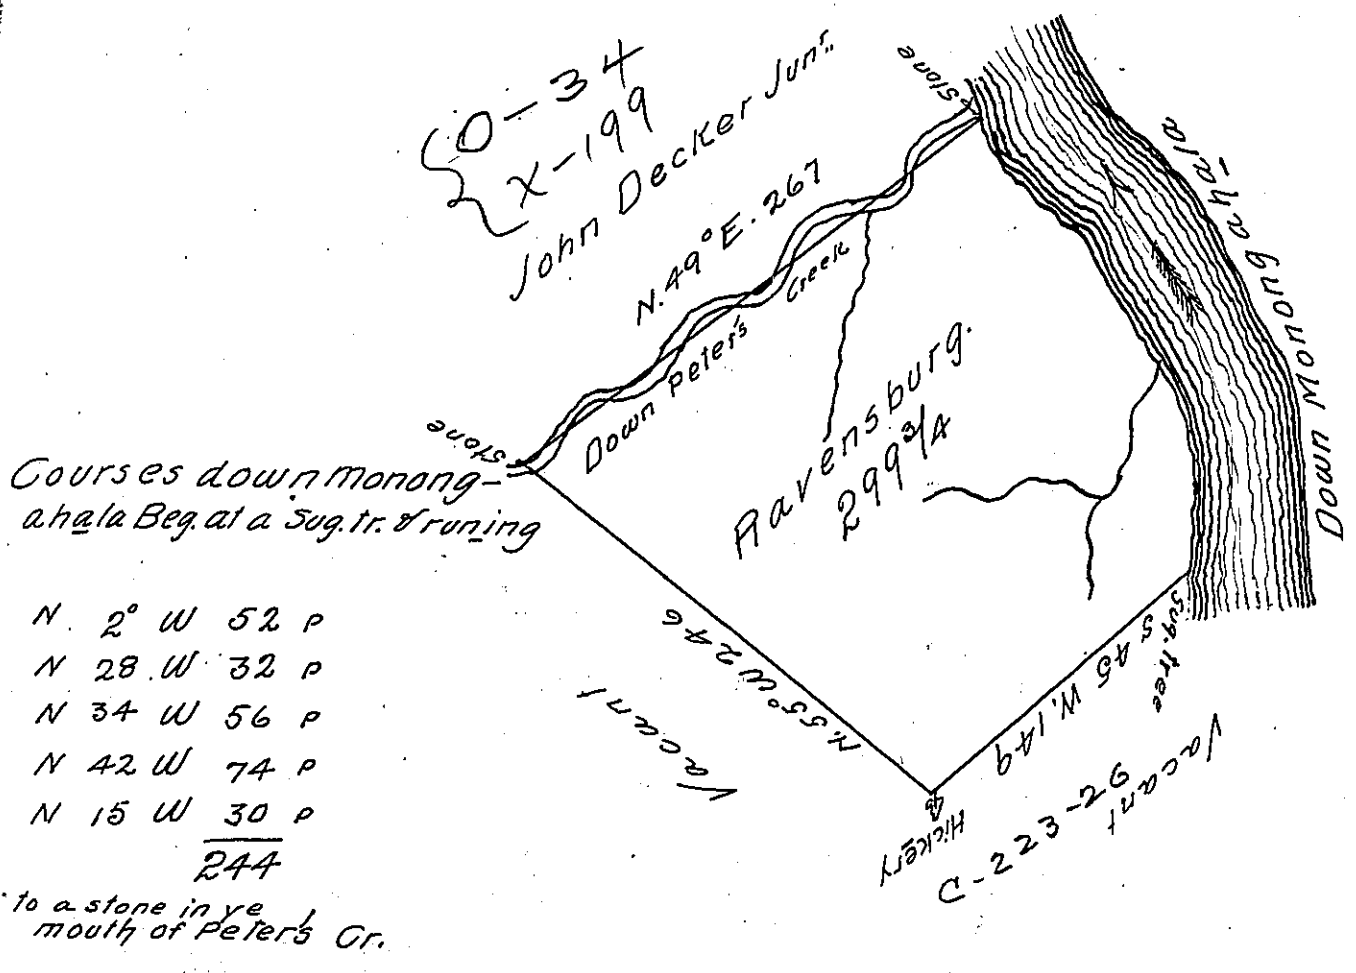 O-34
X-199
John Decker Junr.
Stone
N. 49° E. 267
Down Peter's Creek
Down Monongahala
Ravensburg.
299 3/4
Stone
Courses down monong-
ahala Beg. at a Sug. tr. & runing
N. 2° W 52 P
N 28 W 32 P
N 34 W 56 P
N 42 W 74 P
N 15 W 30 P
244
to a stone in ye
mouth of Peter's Cr.
N. 55° W 246
Vacant
Sug. tree
S 45 W. 149
Vacant
Hickery
C-223-26